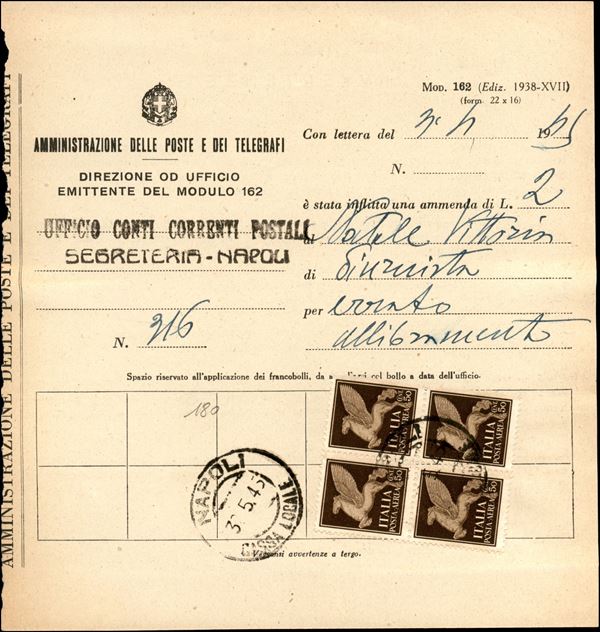 AMMINISTRAZIONE DELLE POSTE E DEI TELEGRAFI
MOD. 162 (Ediz. 1938-XVII)
(form. 22 x 16)
AMMINISTRAZIONE DELLE POSTE E DEI TELEGRAFI
DIREZIONE OD UFFICIO
EMITTENTE DEL MODULO 162
UFFICIO CONTI CORRENTI POSTALI
SEGRETERIA - NAPOLI
N. 316
Con lettera del 19 45
N.
è stata inflitta una ammenda di L. 2
Natale Vittorio
di Giurnista
per errato
allibramento
Spazio riservato all'applicazione dei francobolli, da col bollo a data dell'ufficio.
180
POSTA AEREA
ITALIA
CENT 50
POSTA AEREA
ITALIA
CENT 50
POSTA AEREA
ITALIA
CENT 50
POSTA AEREA
ITALIA
CENT 50
NAPOLI
5.45
CASSA LOCALE
avvertenze a tergo.